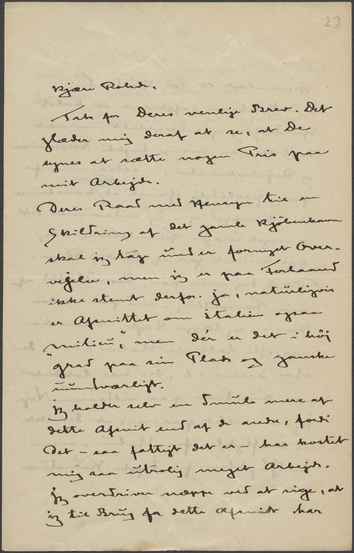 23
Kjære Rohde.
Tak for Deres venlige Brev. Det
glæder mig deraf at se, at De
synes at sætte nogen Pris paa
mit Arbejde.
Deres Raad med Hensyn til en
Skildring af det gamle Kjöbenhavn
skal jeg tage under fornyet Over-
vejelse, men jeg er paa Forhaand
ikke stemt derfor. Jo, naturligvis
er Afsnittet om Italien ogsaa
"milieu," men dér er det i höj
Grad paa sin Plads og ganske
uundværligt.
Jeg holder selv en Smule mere af
dette Afsnit end af de andre, fordi
det – saa fattigt det er – har kostet
mig saa utrolig meget Arbejde.
Jeg overdriver næppe ved at sige, at
jeg til Brug for dette Afsnit har